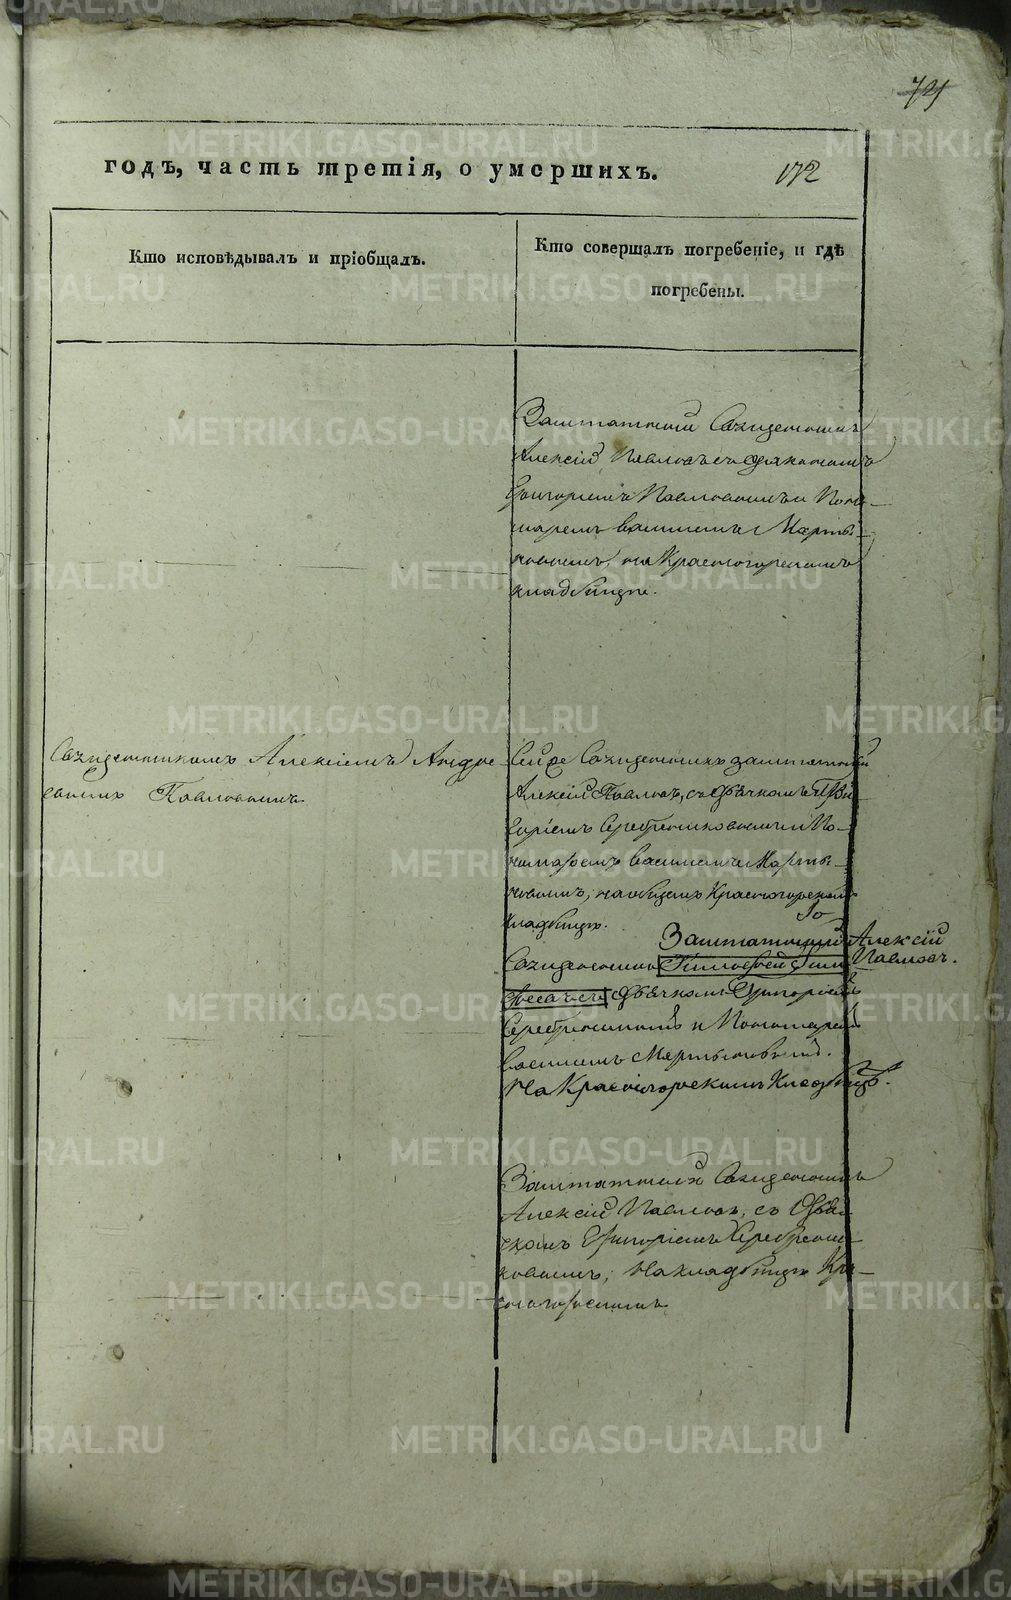 721
годъ, часть третія, о умершихъ.
172
Кто исповѣдывалъ и пріобщалъ.
Кто совершалъ погребеніе, и гдѣ
погребены.
Заштатный Священникъ
Алексій Павловъ съ дьякономъ
Григоріемъ Павловымъ и Поно-
маремъ Васильемъ Марты-
новымъ, на Красногорскомъ
кладбищѣ.
Священникомъ Алексіемъ Андре-
евымъ Павловымъ
Священникъ заштатный
Алексій Павловъ, съ Дьячкомъ Гри-
горіемъ Серебренниковымъ и По-
номаремъ Васильемъ Марты-
новымъ, на общемъ Красногорскомъ
кладбищѣ.
Заштатный Алексій
Священникъ Павловъ.
съ Дьячкомъ Григоріемъ
и Пономаремъ
Васильемъ
На Красногорскомъ Кладбищѣ.
Заштатный Священникъ
Алексій Павловъ, съ Дьяч-
комъ Григоріемъ Серебренни-
ковымъ, на кладбищѣ Кра-
сногорскомъ
METRIKI.GASO-URAL.RU